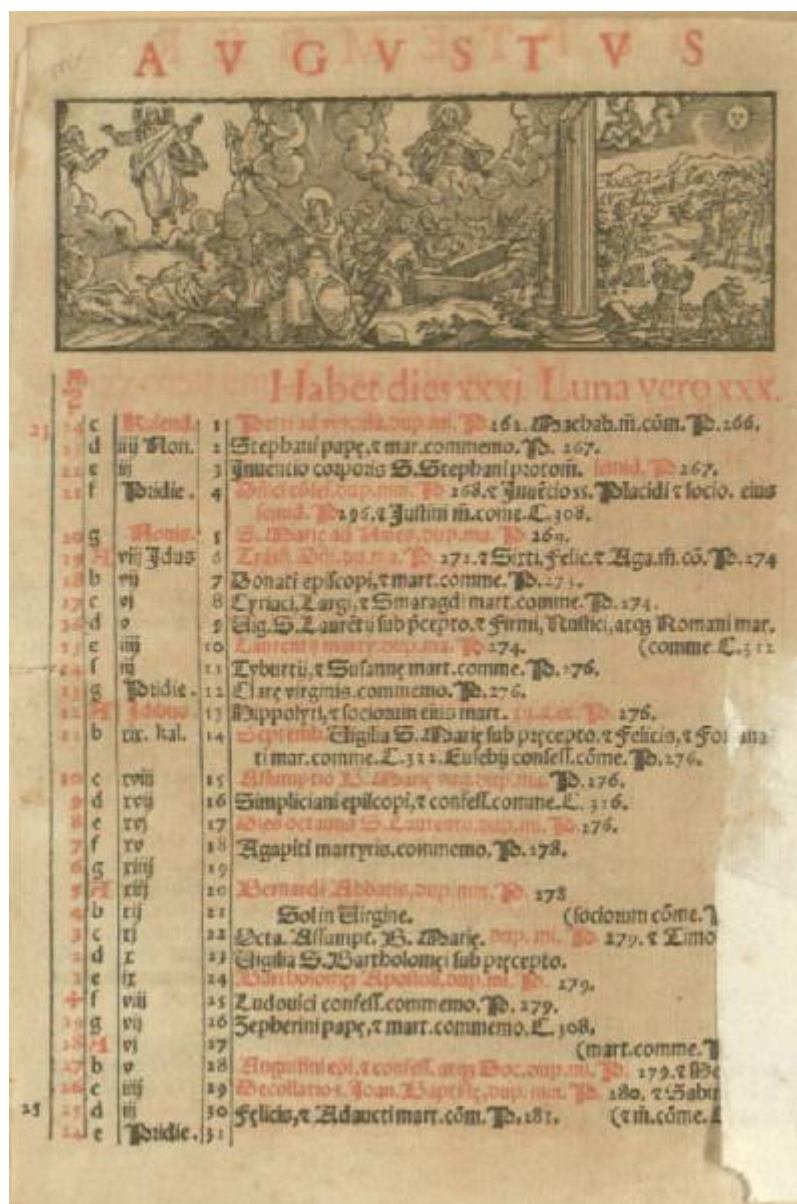 AVGVSTVS
Habet dies xxxj. Luna vero xxx.
c Kalend. 1 Petri ad vincula.dup.mi. P. 162. Machab.m̃.cõm. P. 266.
d iiij Non. 2 Stephani papę,⁊ mar.commemo. P. 267.
e iij 3 Inuentio corporis S.Stephani protom̃. semid. P. 267.
f Pridie. 4 dup.min. P. 268.⁊ Inuẽtio ss. Placidi ⁊ socio. eius
semid. P. 296.⁊ Justini m̃.come.C.308.
20 g Nonis. 5 S. Marię ad Niues.dup.ma. P. 269.
19 A viij Idus 6 P. 272.⁊ Sixti, Felic.⁊ Aga.m̃.cõ. P. 274
18 b vij 7 Donati episcopi,⁊ mart.comme. P. 273.
17 c vj 8 Cyriaci, Largi, ⁊ Smaragdi mart.comme. P. 274.
16 d v 9 Uig. S. Laurẽtij sub p̃cepto.⁊ Firmi, Rustici, atqꝫ Romani mar.
15 e iiij 10 Laurentij marty.dup.ma. P. 274. (comme C.312
14 f iij 11 Tyburtij, ⁊ Susannę mart.comme. P. 276.
13 g Pridie. 12 Clarę virginis.commemo. P. 276.
12 A Idibus 13 Hippolyti, ⁊ sociorum eius mart. P. 276.
11 b xix. kal. 14 Septemb. Uigilia S. Marię sub pręcepto.⁊ Felicis, ⁊ For una-
ti mar.comme.C.312. Eusebij confess.cõme. P. 276.
10 c xviij 15 Assumptio B. Marię dup.ma. P. 276.
9 d xvij 16 Simpliciani episcopi, ⁊ confess.comme.C. 316.
8 e xvj 17 Dies octauus S. Laurentij.dup.mi. P. 276.
7 f xv 18 Agapiti martyris.commemo. P. 278.
6 g xiiij 19
5 A xiij 20 Bernardi Abbatis.dup.min. P. 278
4 b xij 21 Sol in Uirgine. (sociorum cõme.
3 c xj 22 Octa. Assumpt. B. Marię. dup.mi. P. 279.⁊ Timo
2 d x 23 Uigilia S. Bartholomęi sub pręcepto.
e ix 24 Bartholomęi Apostoli.dup.mi. P. 279.
f viij 25 Ludouici confess.commemo. P. 279.
29 g vij 26 Zepherini papę, ⁊ mart.commemo.C.308.
28 A vj 27 (mart.comme. P
27 b v 28 Augustini ep̃i.⁊ confess. atqꝫ Doc.dup.mi. P. 279.⁊
26 c iiij 29 Decollatio s. Joan. Baptistę.dup.min. P. 180. ⁊ Sabin
25 25 d iij 30 Felicis, ⁊ Adaucti mart.cõm. P. 281. (⁊ m̃.cõme.
24 e Pridie. 31